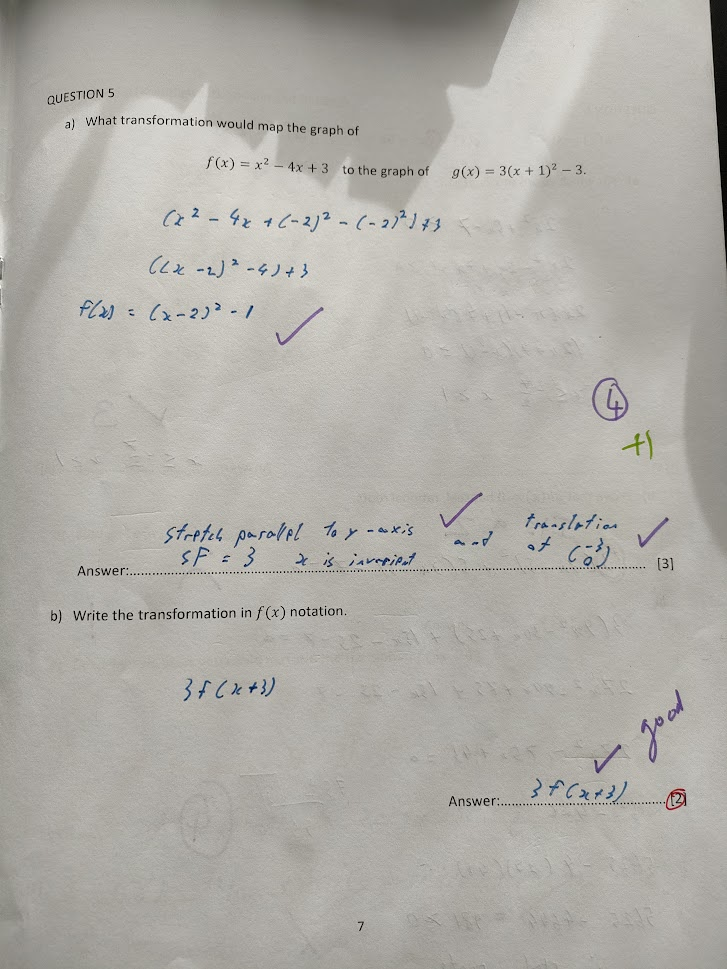 QUESTION 5
a) What transformation would map the graph of
f(x) = x² − 4x + 3 to the graph of g(x) = 3(x + 1)² − 3.
(x² - 4x + (-2)² - (-2)²) + 3
((x - 2)² - 4) + 3
f(x) = (x-2)² - 1 ✓
4
+1
stretch parallel to y-axis ✓ and translation ✓
SF = 3 x is invarient of (-3 0)
Answer:.......... [3]
b) Write the transformation in f(x) notation.
3f(x+3)
good
✓
Answer:.......... 3f(x+3) .......... [2]
7